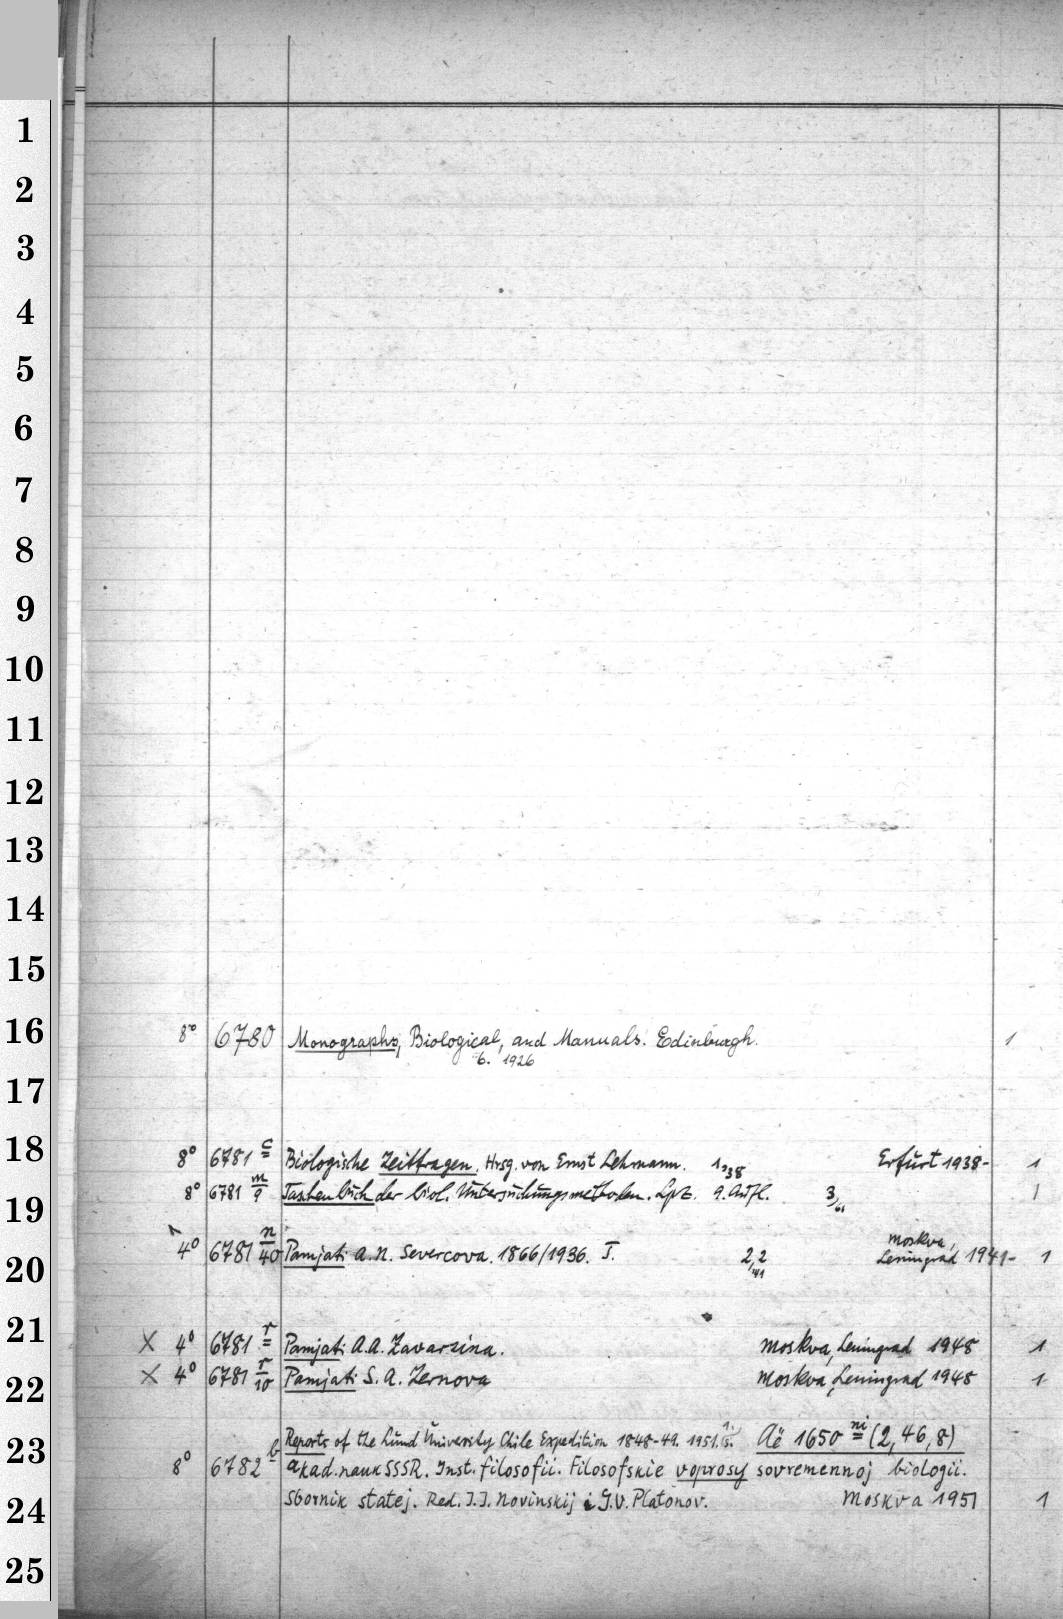 1
2
3
4
5
6
7
8
9
10
11
12
13
14
15
16
8° 6780 Monographs, Biological, and Manuals. Edinburgh. 1
6. 1926
17
18
8° 6781 c Biologische Zeitfragen. Hrsg. von Ernst Lehmann. 1,38 Erfurt 1938- 1
8° 6781 m/9 Taschenbuch der biol. Untersuchungsmethoden. Lpz. 9. Aufl. 3, 1
19
Moskva,
4° 6781 n/40 Pamjati A. N. Severcova. 1866/1936. I. 2,2 41 Leningrad 1941- 1
20
21
X 4° 6781 r Pamjati A. A. Zavarzina. Moskva, Leningrad 1948 1
X 4° 6781 r/10 Pamjati S. A. Zernova Moskva, Leningrad 1948 1
22
Reports of the Lund University Chile Expedition 1848-49. 1951. Aë 1650 ni (2,46,8)
23
8° 6782 b Akad. nauk SSSR. Inst. filosofii. Filosofskie voprosy sovremennoj biologii.
Sbornik statej. Red. I. I. Novinskij i G. V. Platonov. Moskva 1951 1
24
25